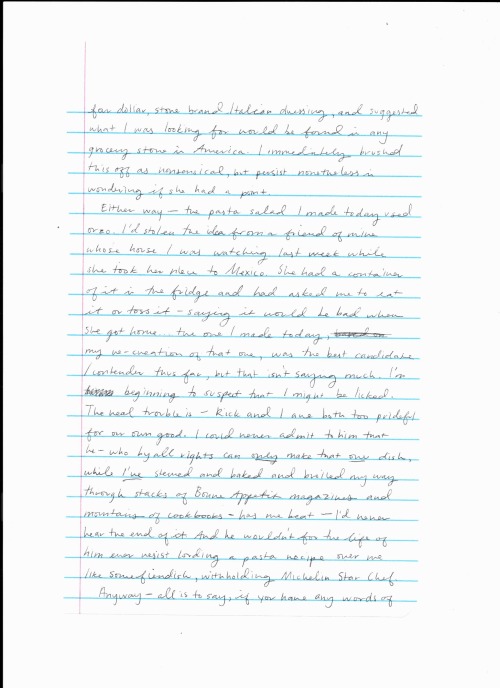 four dollar, store brand Italian dressing, and suggested
what I was looking for would be found in any
grocery store in America. I immediately brushed
this off as nonsensical, but persist nonetheless in
wondering if she had a point.
Either way — the pasta salad I made today used
orzo. I'd stolen the idea from a friend of mine
whose house I was watching last week while
she took her niece to Mexico. She had a container
of it in the fridge and had asked me to eat
it or toss it — saying it would be bad when
she got home. The one I made today, based on
my re-creation of that one, was the best candidate
/contender thus far, but that isn't saying much. I'm
beginning to suspect that I might be licked.
The real trouble is — Rick and I are both too prideful
for our own good. I could never admit to him that
he — who by all rights can only make that one dish,
while I've stewed and baked and broiled my way
through stacks of Bon Appetit magazines and
mountains of cookbooks — has me beat — I'd never
hear the end of it. And he wouldn't for the life of
him ever resist lording a pasta recipe over me
like some fiendish, withholding Michelin Star Chef.
Anyway — all is to say, if you have any words of